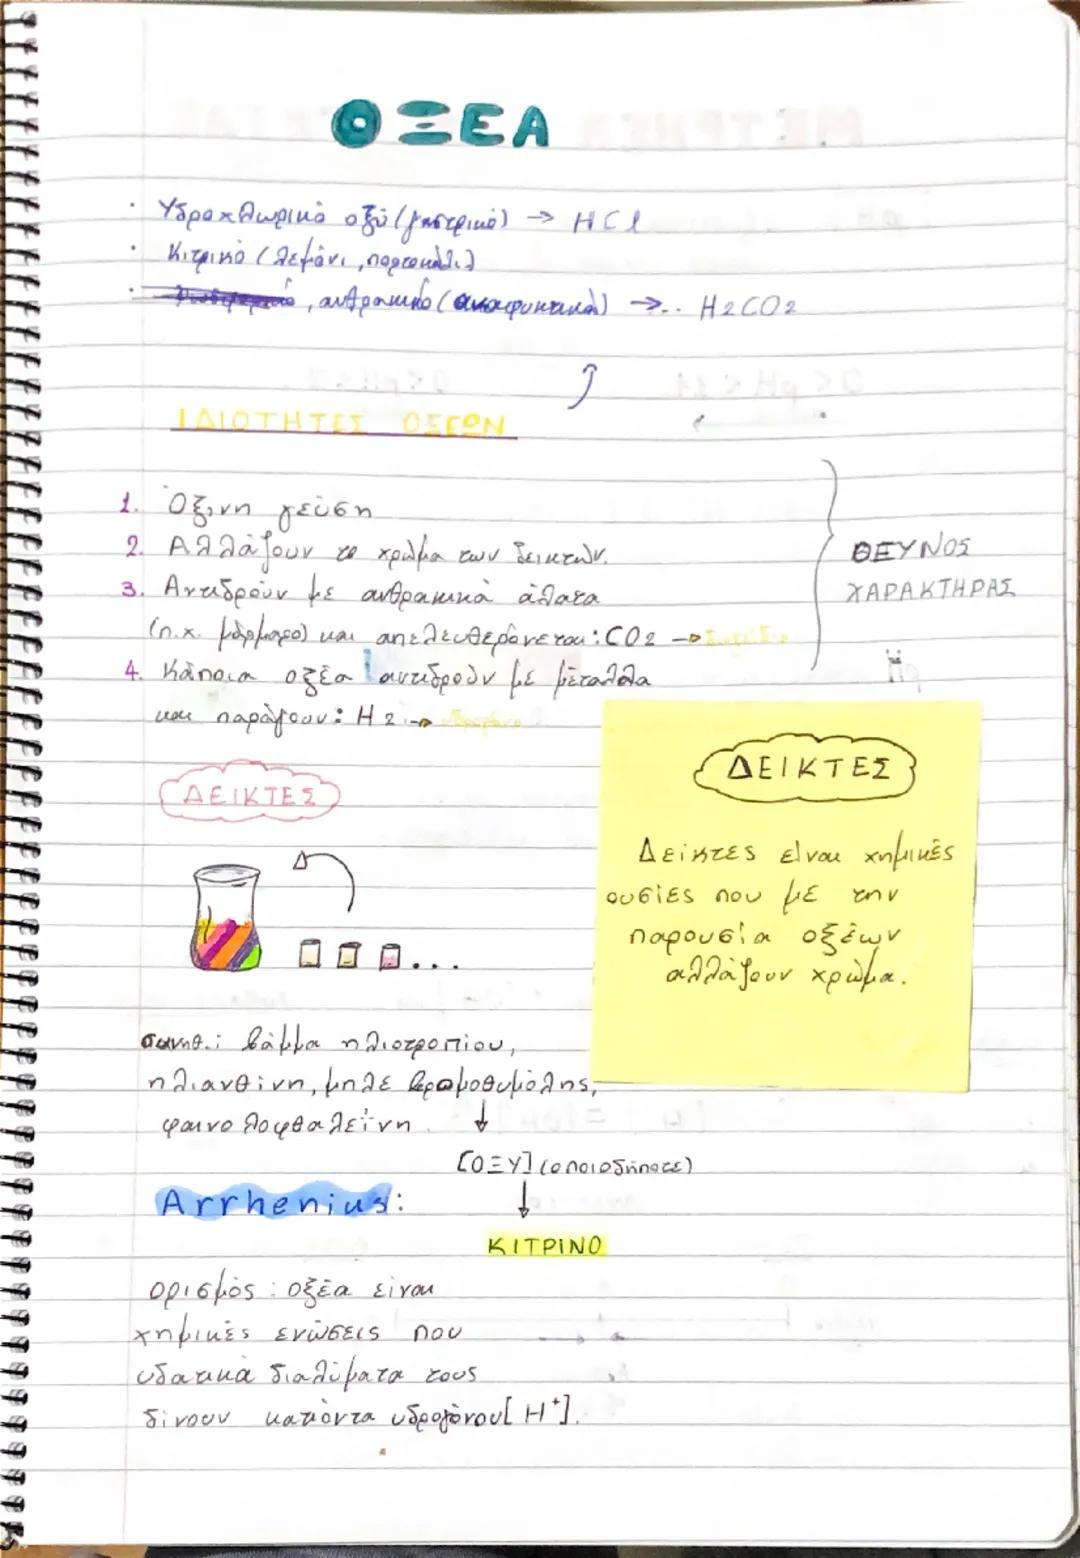 ΟΞΕΑ
· Υδροχλωρικό οξύ (γαστρικό) → HCl
· Κιτρικό (λεμόνι, πορτοκάλι)
· , ανθρακικό (αναψυκτικά) →.. H2CO2
ΙΔΙΟΤΗΤΕΣ ΟΞΕΩΝ
1. Όξινη γεύση
2. Αλλάζουν το χρώμα των δεικτών.
3. Αντιδρούν με ανθρακικά άλατα
(π.χ. μάρμαρο) και απελευθερώνεται: CO2 →
4. Κάποια οξέα αντιδρούν με μέταλλα
και παράγουν: H2 → υδρογόνο
ΟΕΥΝΟΣ
ΧΑΡΑΚΤΗΡΑΣ
ΔΕΙΚΤΕΣ
ΔΕΙΚΤΕΣ
Δείκτες είναι χημικές
ουσίες που με την
παρουσία οξέων
αλλάζουν χρώμα.
συνηθ.: βάμμα ηλιοτροπίου,
ηλιανθίνη, μπλε βρομοθυμόλης,
φαινολοφθαλεΐνη.
↓
[ΟΞΥ] (οποιοδήποτε)
↓
ΚΙΤΡΙΝΟ
Arrhenius:
ορισμός: οξέα είναι
χημικές ενώσεις που
υδατικά διαλύματα τους
δίνουν κατιόντα υδρογόνου[H⁺].